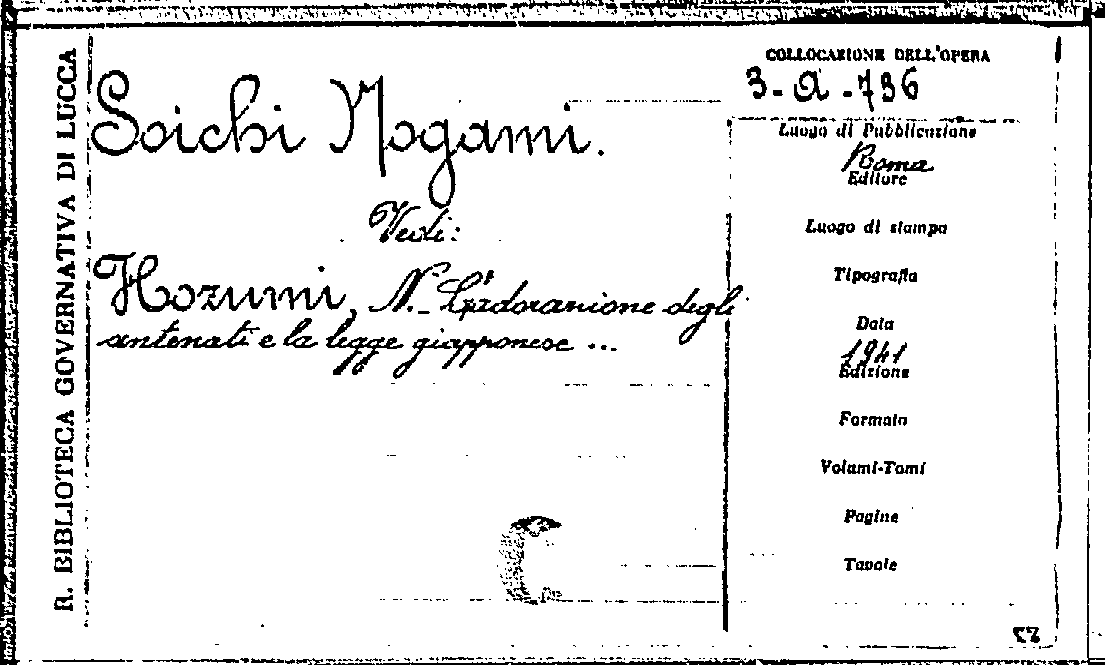 R. BIBLIOTECA GOVERNATIVA DI LUCCA
Soichi Nogami.
Vedi:
Hozumi, N. - L'adorazione degli
antenati e la legge giapponese ...
COLLOCAZIONE DELL'OPERA
3-a-736
Luogo di Pubblicazione
Roma
Editore
Luogo di stampa
Tipografia
Data
1941
Edizione
Formato
Volumi-Tomi
Pagine
Tavole